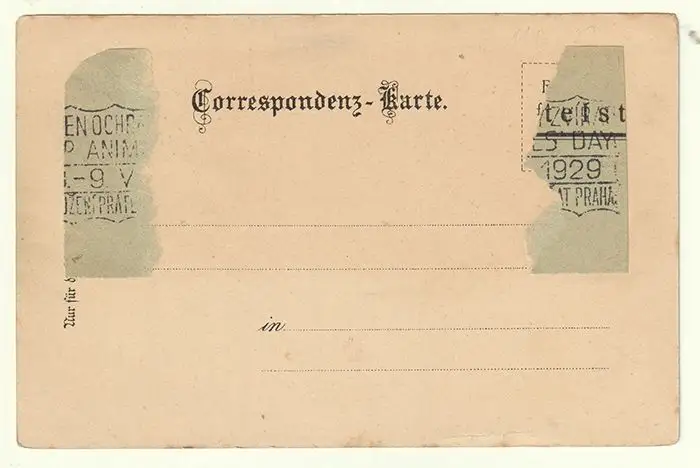 Correspondenz-Karte.
EN OCHRA
P ANIM
-9 V
UZENT PRÁTE
F
ftelst
ES' DAY
1929
AT PRAHA
Nur für d
in